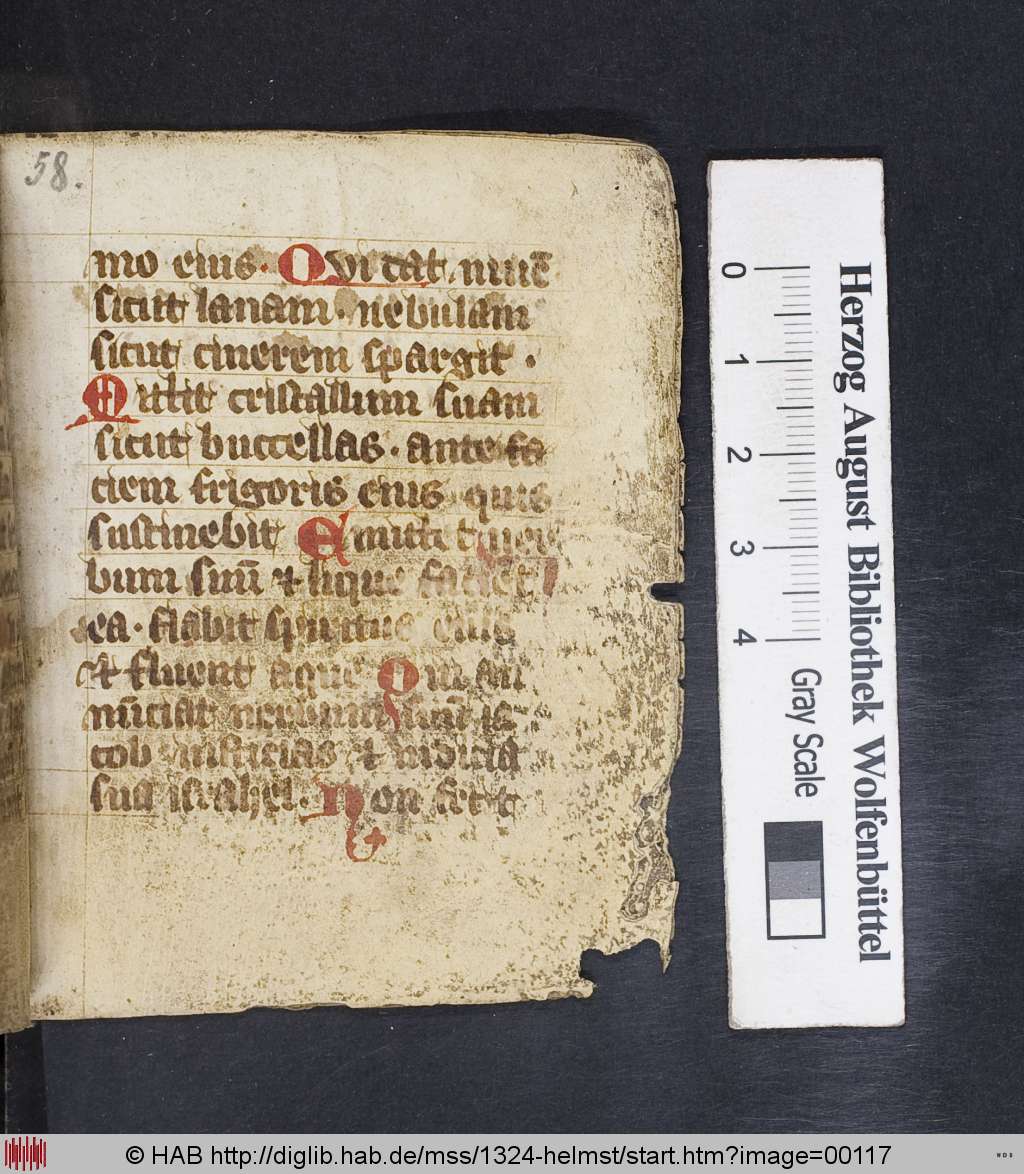 58.
mo eius. Qui dat niuē
sicut lanam. nebulam
sicut cinerem spargit.
Mittit cristallum suam
sicut buccellas. ante fa
ciem frigoris eius quis
sustinebit Emittet uer
bum suū et lique faciet
ea. flabit spiritus eius
et fluent aque Qui an
nūciat uerbum suū ia
cob iusticias et iudicia
sua israhel. Non fecit
0
1
2
3
4
Gray Scale
Herzog August Bibliothek Wolfenbüttel
© HAB http://diglib.hab.de/mss/1324-helmst/start.htm?image=00117